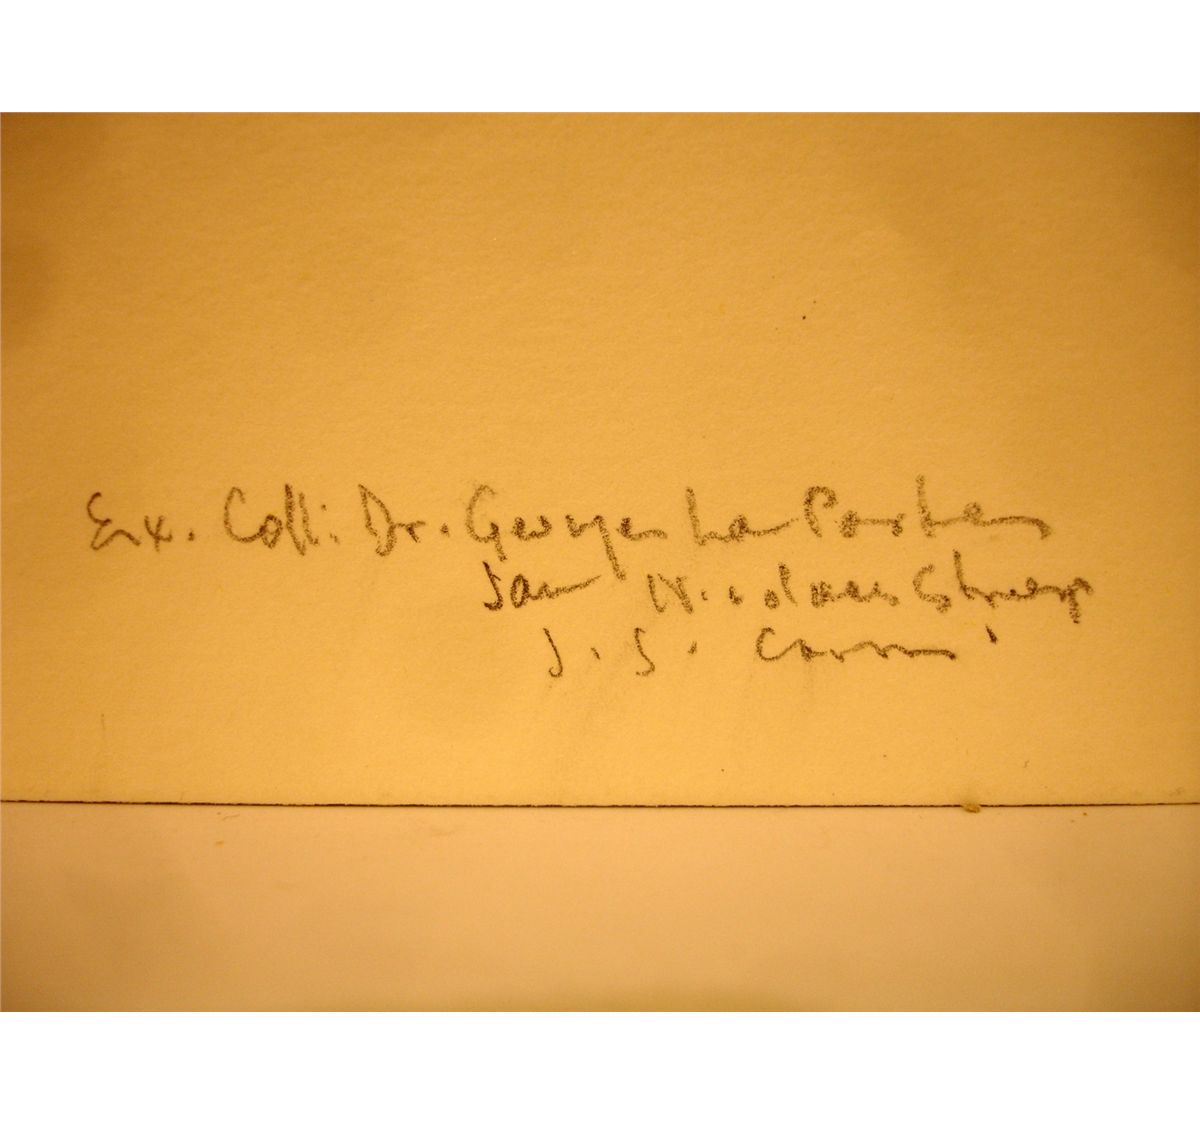 Ex. Coll: Dr. Georges La Porte
Jan Nicolaas Streep
J. S.